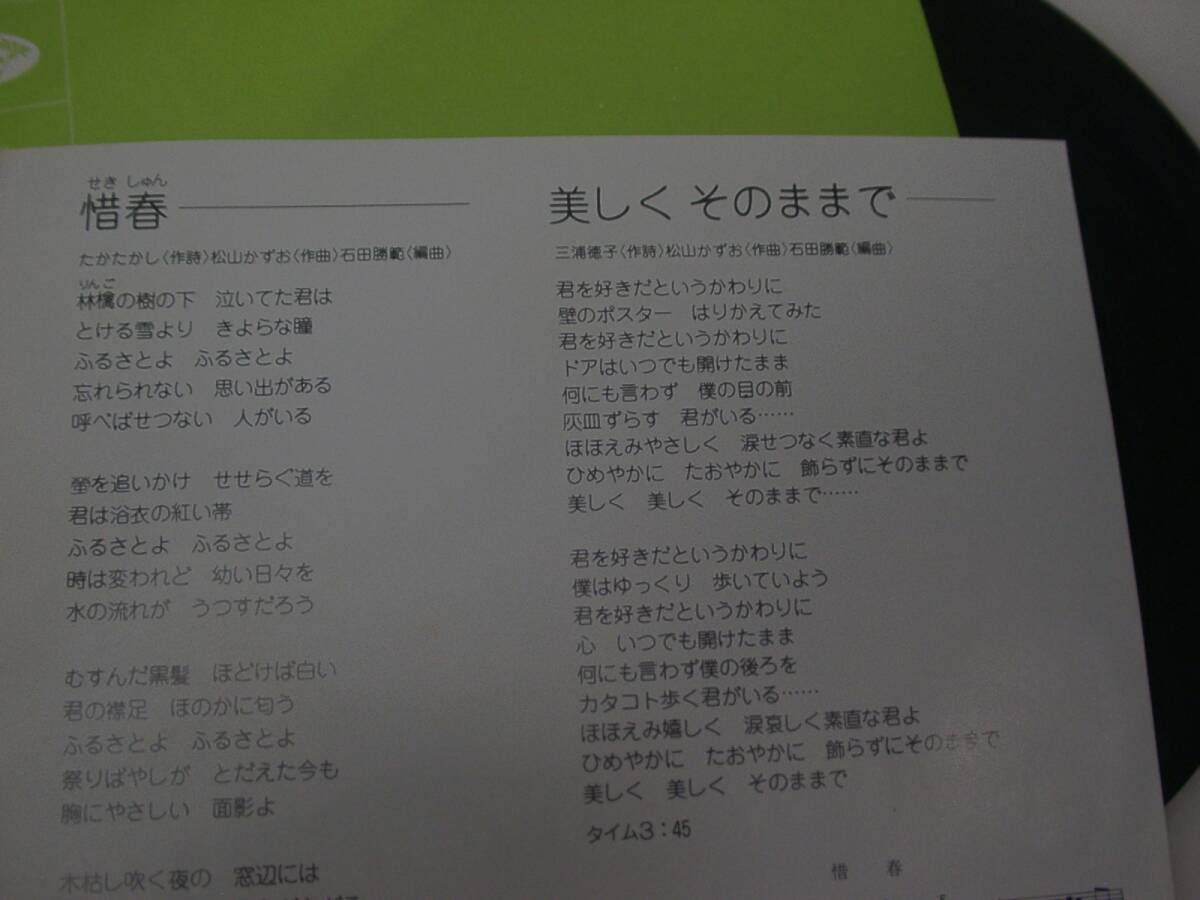 せきしゅん
惜春
たかたかし〈作詩〉松山かずお〈作曲〉石田勝範〈編曲〉
りんご
林檎の樹の下　泣いてた君は
とける雪より　きよらな瞳
ふるさとよ　ふるさとよ
忘れられない　思い出がある
呼べばせつない　人がいる
螢を追いかけ　せせらぐ道を
君は浴衣の紅い帯
ふるさとよ　ふるさとよ
時は変われど　幼い日々を
水の流れが　うつすだろう
むすんだ黒髪　ほどけば白い
君の襟足　ほのかに匂う
ふるさとよ　ふるさとよ
祭りばやしが　とだえた今も
胸にやさしい　面影よ
木枯し吹く夜の　窓辺には
美しく そのままで
三浦徳子〈作詩〉松山かずお〈作曲〉石田勝範〈編曲〉
君を好きだというかわりに
壁のポスター　はりかえてみた
君を好きだというかわりに
ドアはいつでも開けたまま
何にも言わず　僕の目の前
灰皿ずらす　君がいる……
ほほえみやさしく　涙せつなく素直な君よ
ひめやかに　たおやかに　飾らずにそのままで
美しく　美しく　そのままで……
君を好きだというかわりに
僕はゆっくり　歩いていよう
君を好きだというかわりに
心　いつでも開けたまま
何にも言わず僕の後ろを
カタコト歩く君がいる……
ほほえみ嬉しく　涙哀しく素直な君よ
ひめやかに　たおやかに　飾らずにそのままで
美しく　美しく　そのままで
タイム3：45
惜　春